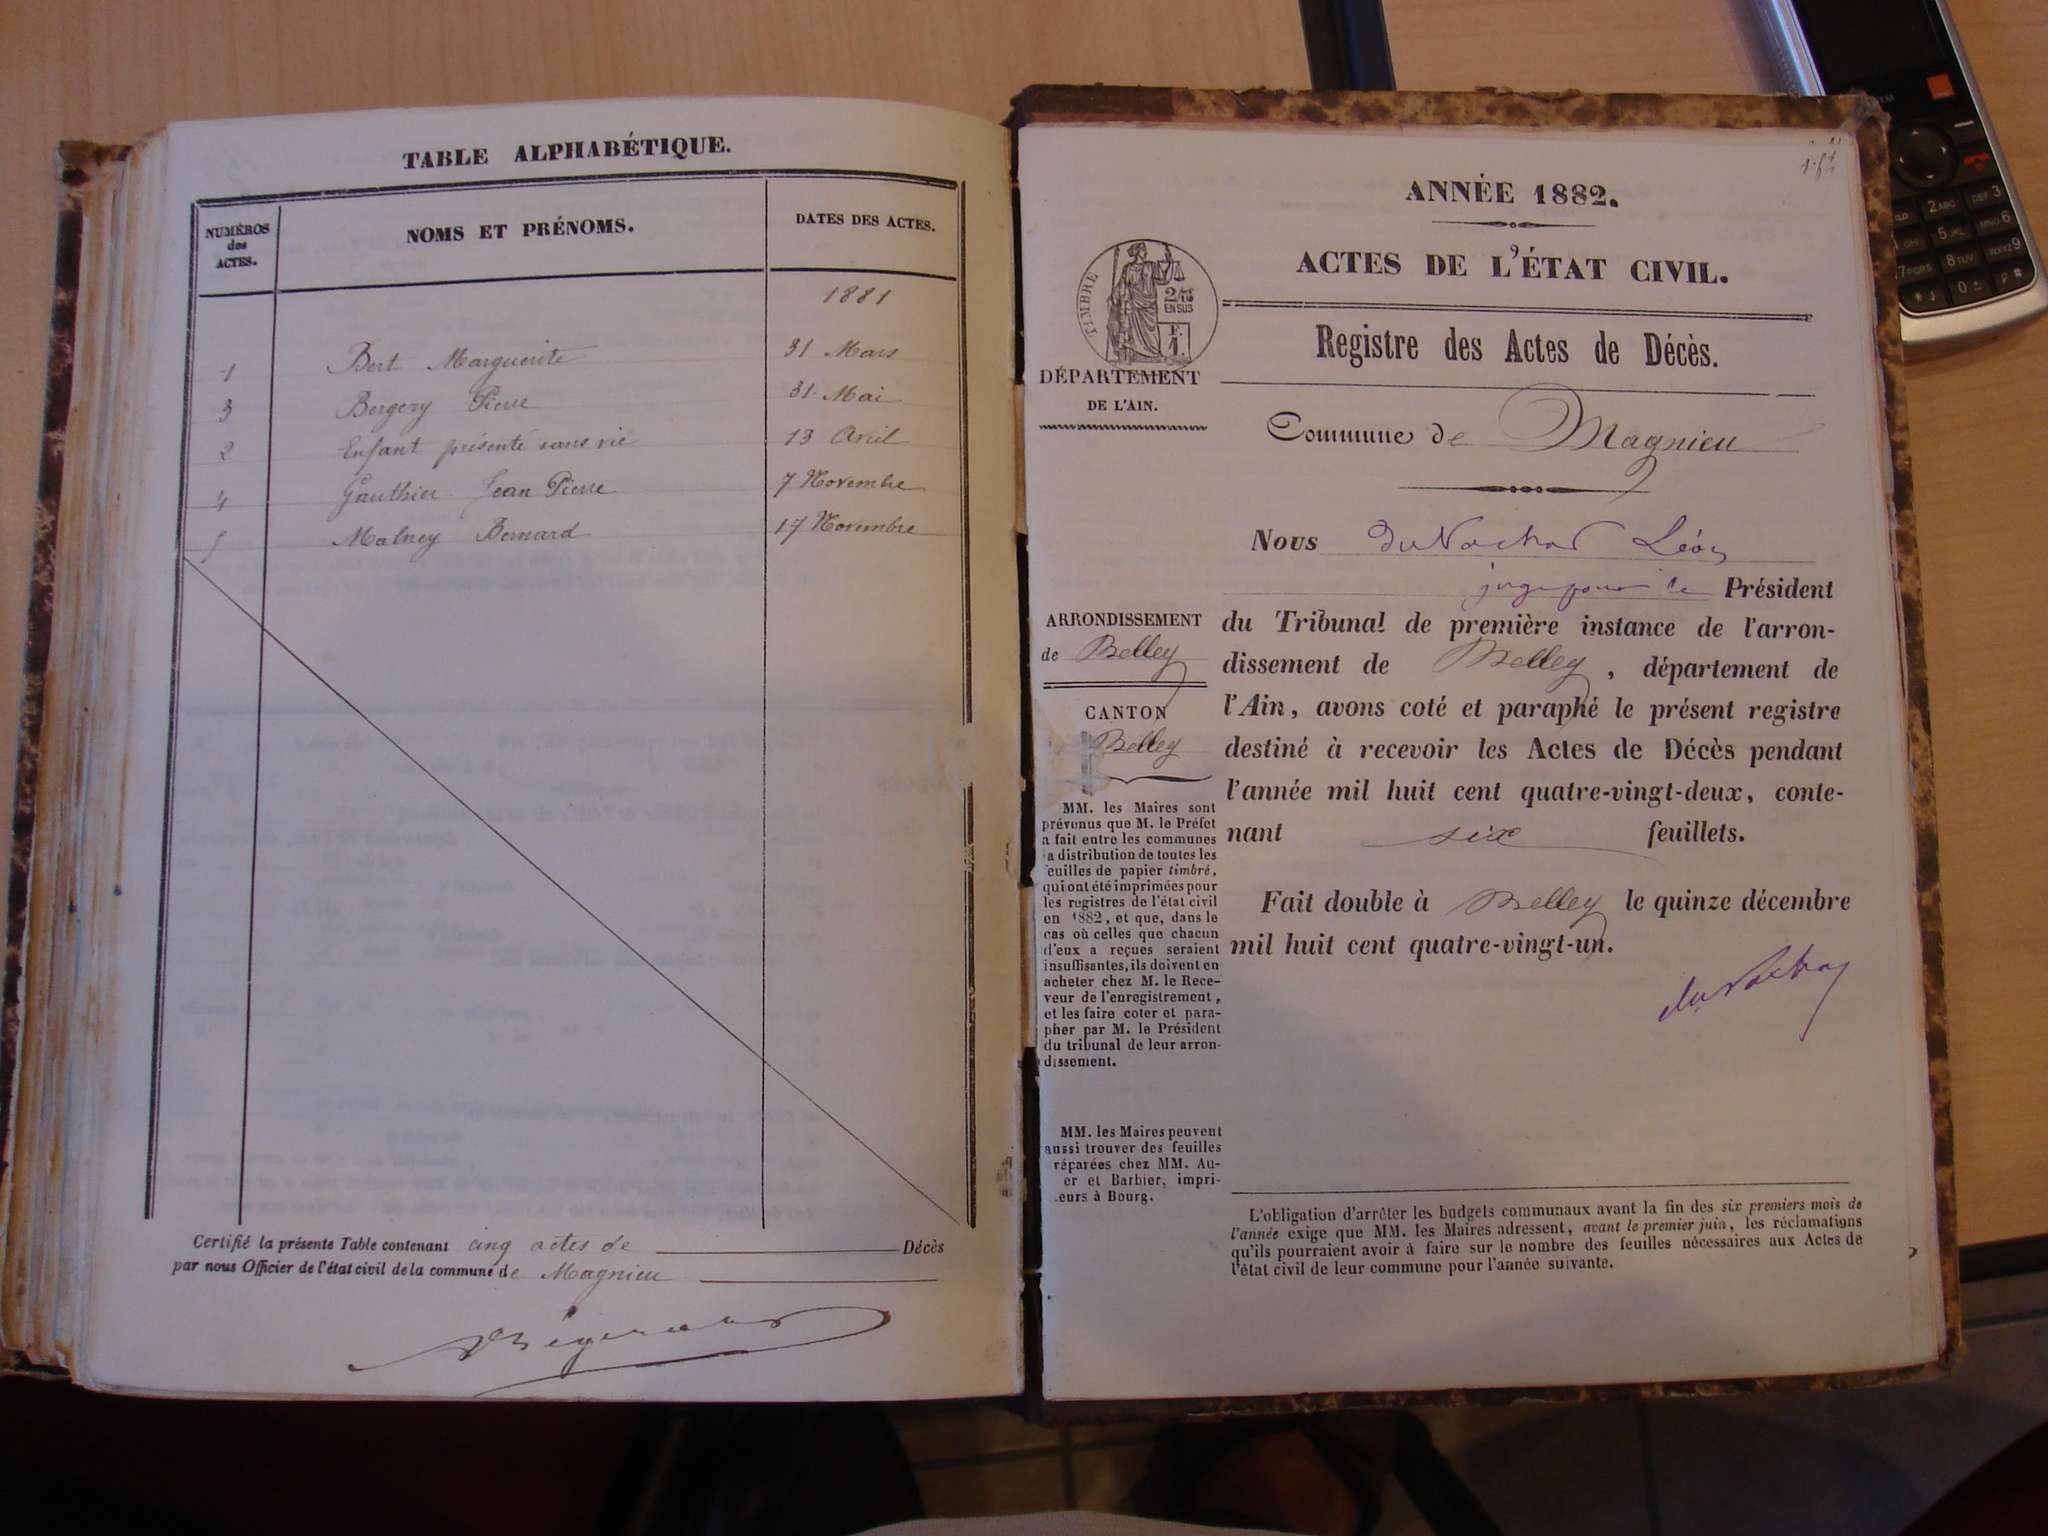 TABLE ALPHABÉTIQUE.
NUMÉROS des ACTES.
NOMS ET PRÉNOMS.
DATES DES ACTES.
1881
1 Bert Marguerite 31 Mars
3 Bergery Pierre 31 Mai
2 Enfant présenté sans vie 13 Avril
4 Gauthier Jean Pierre 7 Novembre
5 Malney Bernard 17 Novembre
Certifié la présente Table contenant cinq actes de Décès
par nous Officier de l'état civil de la commune de Magnieu
ANNÉE 1882.
ACTES DE L'ÉTAT CIVIL.
TIMBRE
2/10
EN SUS
F.
1.
Registre des Actes de Décès.
DÉPARTEMENT
DE L'AIN.
Commune de Magnieu
Nous Léon
juge pour le Président
du Tribunal de première instance de l'arron-
dissement de Belley, département de
l'Ain, avons coté et paraphé le présent registre
destiné à recevoir les Actes de Décès pendant
l'année mil huit cent quatre-vingt-deux, conte-
nant six feuillets.
Fait double à Belley le quinze décembre
mil huit cent quatre-vingt-un.
ARRONDISSEMENT
de Belley
CANTON
Belley
MM. les Maires sont
prévenus que M. le Préfet
a fait entre les communes
la distribution de toutes les
feuilles de papier timbré,
qui ont été imprimées pour
les registres de l'état civil
en 1882, et que, dans le
cas où celles que chacun
d'eux a reçues seraient
insuffisantes, ils doivent en
acheter chez M. le Rece-
veur de l'enregistrement,
et les faire coter et para-
pher par M. le Président
du tribunal de leur arron-
dissement.
MM. les Maires peuvent
aussi trouver des feuilles
réparées chez MM. Au-
er et Barbier, impri-
eurs à Bourg.
L'obligation d'arrêter les budgets communaux avant la fin des six premiers mois de
l'année exige que MM. les Maires adressent, avant le premier juin, les réclamations
qu'ils pourraient avoir à faire sur le nombre des feuilles nécessaires aux Actes de
l'état civil de leur commune pour l'année suivante.
2ABC
DEF 3
5JKL
MNO 6
7PQRS
8TUV
WXYZ 9
0
#